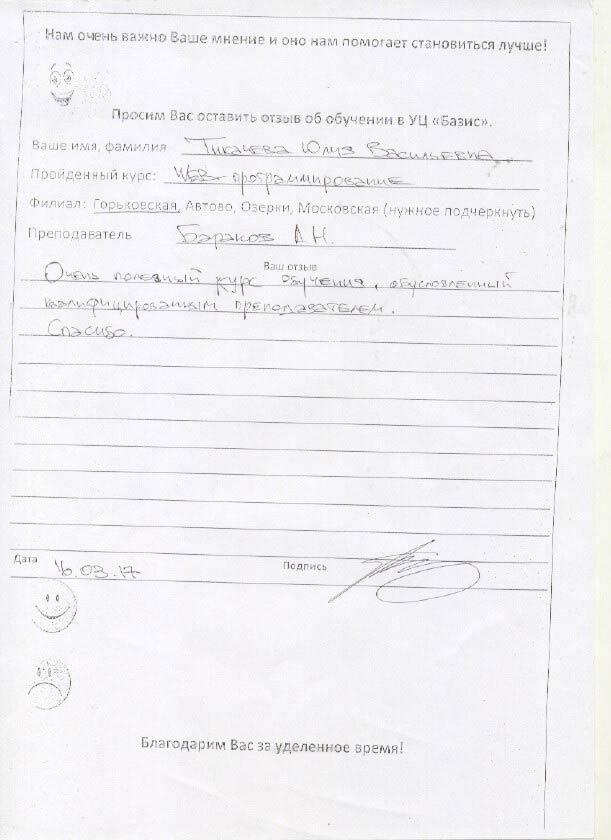 Нам очень важно Ваше мнение и оно нам помогает становиться лучше!
Просим Вас оставить отзыв об обучении в УЦ «Базис».
Ваше имя, фамилия Тикачева Юлия Васильевна
Пройденный курс: Wеb- программирование
Филиал: Горьковская, Автово, Озерки, Московская (нужное подчеркнуть)
Преподаватель А.Н.
Ваш отзыв
Очень полезный курс обучения, обусловленный
квалифицированным преподавателем.
Спасибо.
Дата 16.03.17 Подпись
Благодарим Вас за уделенное время!